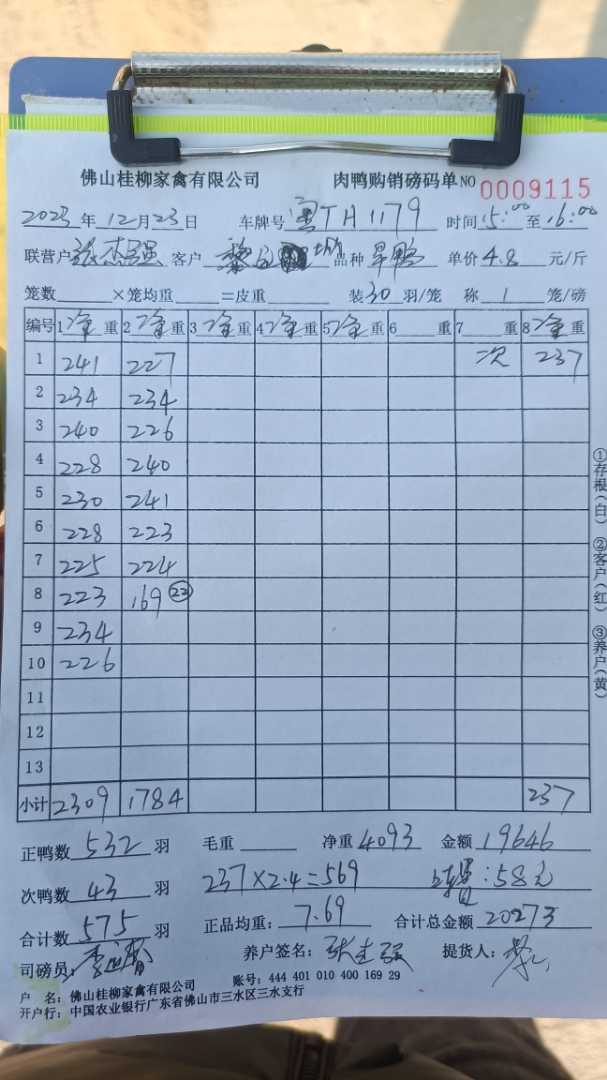 佛山桂柳家禽有限公司 肉鸭购销磅码单 NO 0009115
2023年12月23日 车牌号 粤TH1179 时间15:00至16:00
联营户 张杰强 客户 品种 旱鸭 单价4.8元/斤
笼数 ×笼均重 =皮重 装30羽/笼 称1笼/磅
编号 1净重 2净重 3净重 4净重 5净重 6重 7重 8净重
1 241 227 次 237
2 234 234
3 240 226
4 228 240
5 230 241
6 228 223
7 225 224
8 223 169 (22)
9 234
10 226
11
12
13
小计 2309 1784 237
正鸭数 532 羽 毛重 净重 4093 金额 19646
次鸭数 43 羽 237×2.4=569 :58元
合计数 575 羽 正品均重: 7.69 合计总金额 20273
司磅员: 养户签名: 张杰强 提货人:
户 名: 佛山桂柳家禽有限公司 账号: 444 401 010 400 169 29
开户行: 中国农业银行广东省佛山市三水区三水支行
①存根(白) ②客户(红) ③养户(黄)